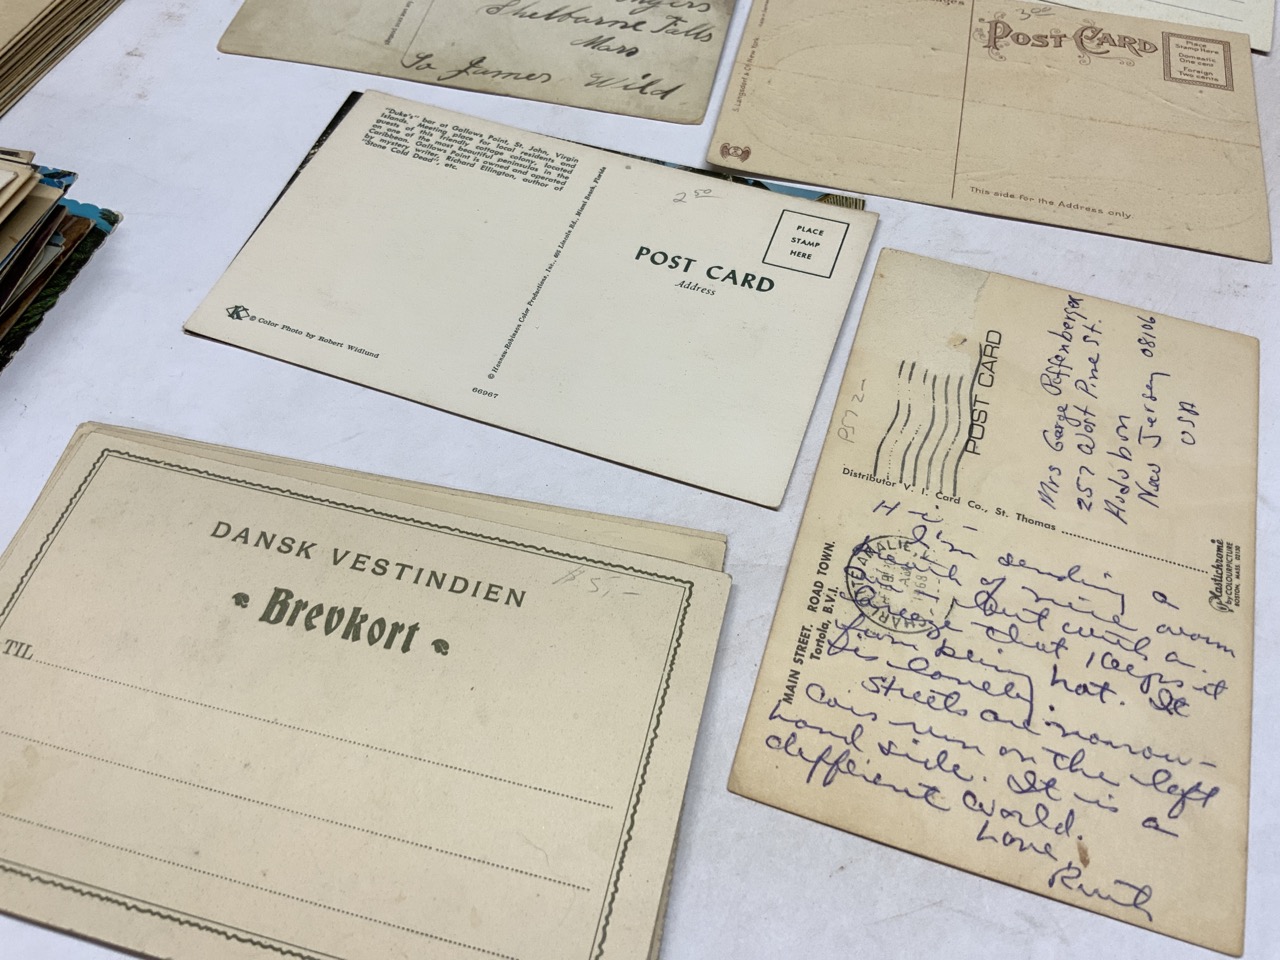 Shelburne Falls
Mass
To James Wild
3.00
POST CARD
Place
Stamp Here
Domestic
One cent
Foreign
Two cents
S. Langsdorf & Co. New York
This side for the Address only.
"Duke's" bar at Gallows Point, St. John, Virgin
Islands. Meeting place for local residents and
guests of this friendly cottage colony, located
on one of the most beautiful peninsulas in the
Caribbean. Gallows Point is owned and operated
by mystery writer, Richard Ellington, author of
"Stone Cold Dead", etc.
2.50
PLACE
STAMP
HERE
POST CARD
Address
K © Color Photo by Robert Widlund
© Hannau-Robinson Color Productions, Inc., 605 Lincoln Rd., Miami Beach, Florida
66967
POST CARD
Mrs George Poffenberger
257 West Pine St.
Audubon
New Jersey 08106
USA
Distributor V. I. Card Co., St. Thomas
MAIN STREET, ROAD TOWN.
Tortola, B.V.I.
Plastichrome
by COLOURPICTURE
BOSTON, MASS. 02130
Hi -
I'm sending a
of nice warm
but with a
that keeps it
from being hot. It
is lonely.
Streets are narrow -
Cars run on the left
hand side. It is a
different world.
Love,
Ruth
DANSK VESTINDIEN
Brevkort
TIL